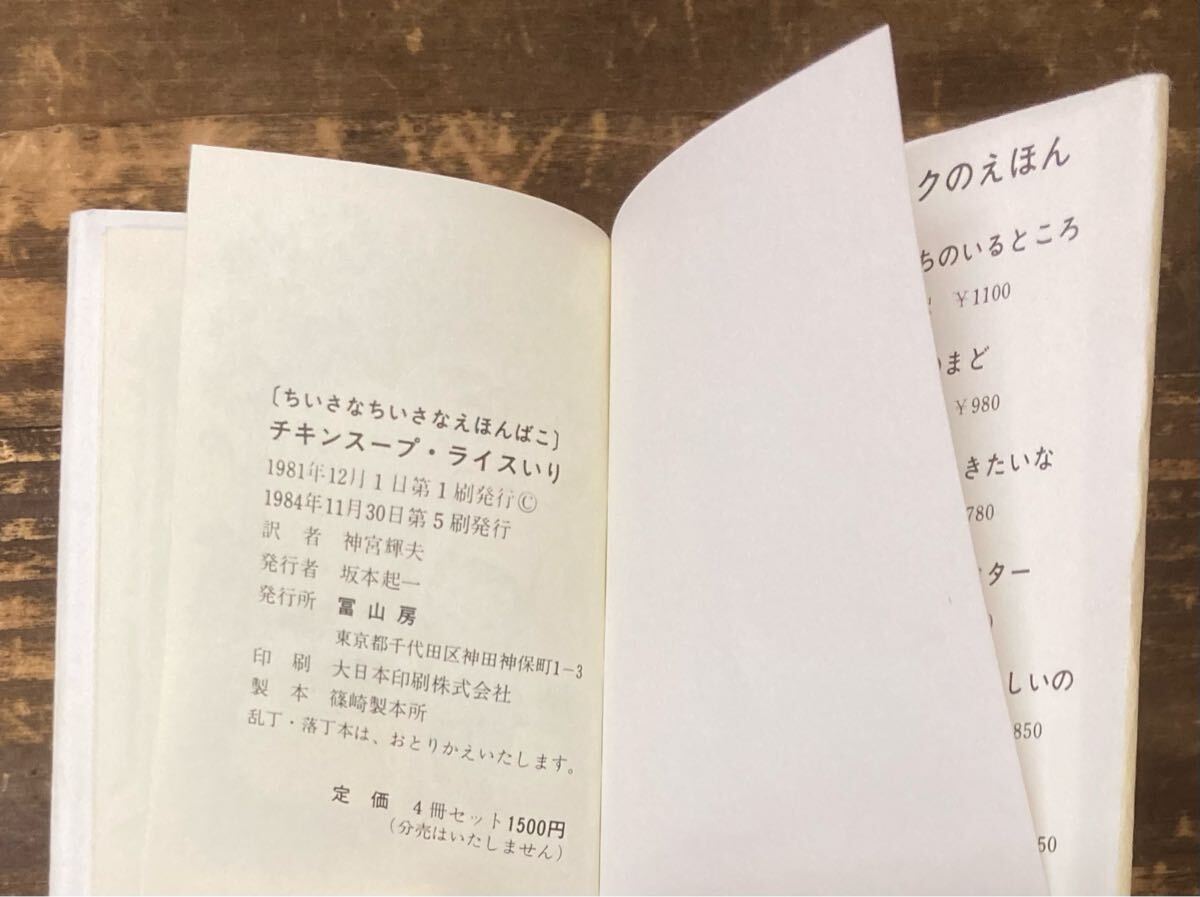 〔ちいさなちいさなえほんばこ〕
チキンスープ・ライスいり
1981年12月1日第1刷発行©
1984年11月30日第5刷発行
訳 者 神宮輝夫
発行者 坂本起一
発行所 冨山房
東京都千代田区神田神保町1-3
印 刷 大日本印刷株式会社
製 本 篠崎製本所
乱丁・落丁本は、おとりかえいたします。
定 価 4冊セット1500円
(分売はいたしません)
クのえほん
ちのいるところ
¥1100
まど
¥980
きたいな
780
ター
しいの
850
50